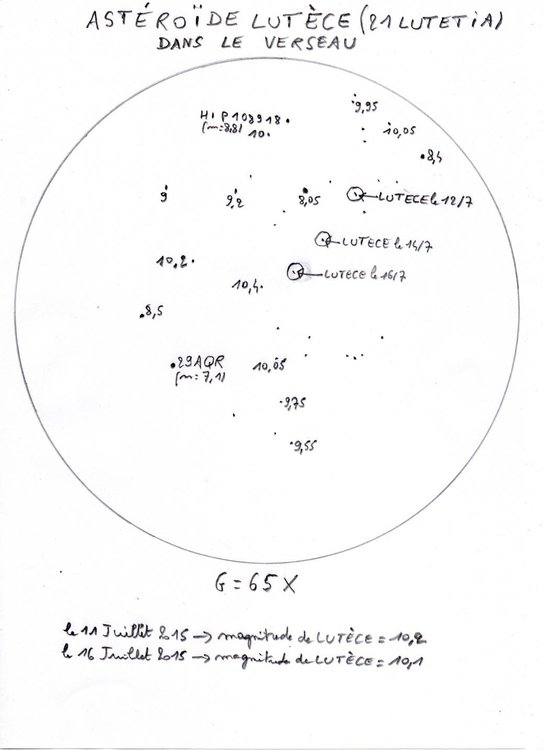 ASTÉROÏDE LUTÈCE (21 LUTETIA)
DANS LE VERSEAU
9,95
HIP 108918
(m=8,8)
10
10,05
8,4
9
9,2
8,05
LUTÈCE le 12/7
LUTÈCE le 14/7
10,2
LUTÈCE le 16/7
10,4
8,5
29 AQR
(m=7,1)
10,05
9,75
9,55
G = 65 X
le 11 Juillet 2015 → magnitude de LUTÈCE = 10,2
le 16 Juillet 2015 → magnitude de LUTÈCE = 10,1